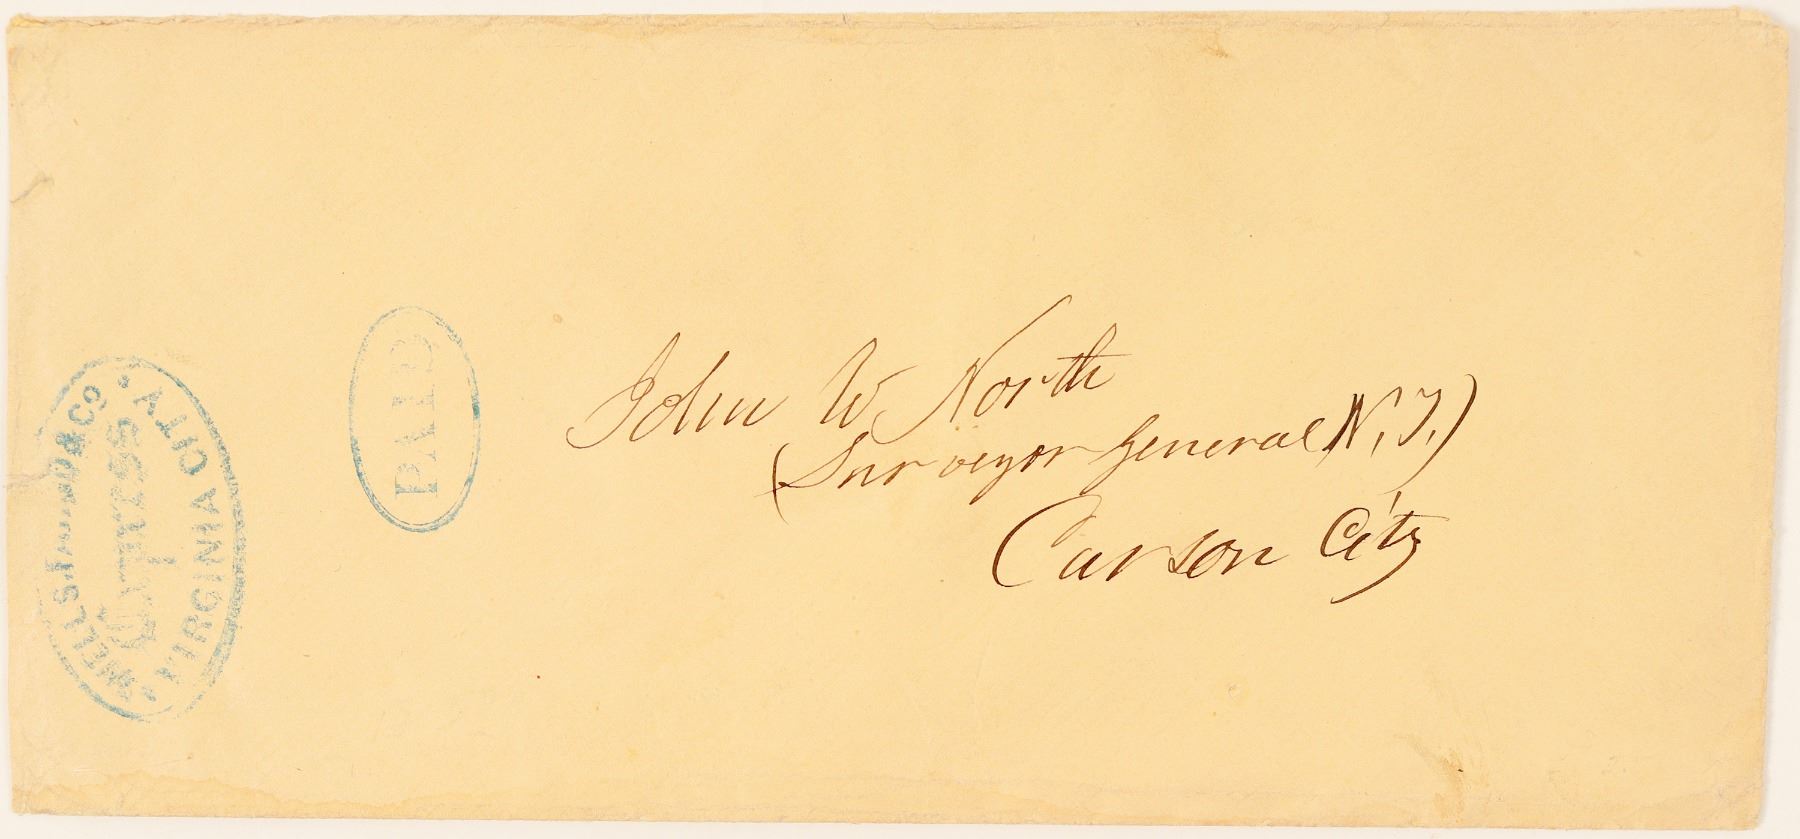 WELLS, FARGO & CO
EXPRESS
VIRGINIA CITY
PAID
John W. North
(Surveyor General N. T.)
Carson City